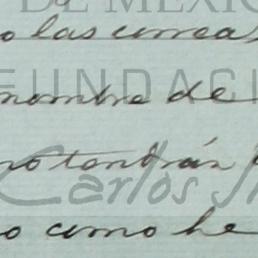 DE MÉXICO
o las correas
FUNDACI
nombre de
no tendrán
Carlos Sl
o como he